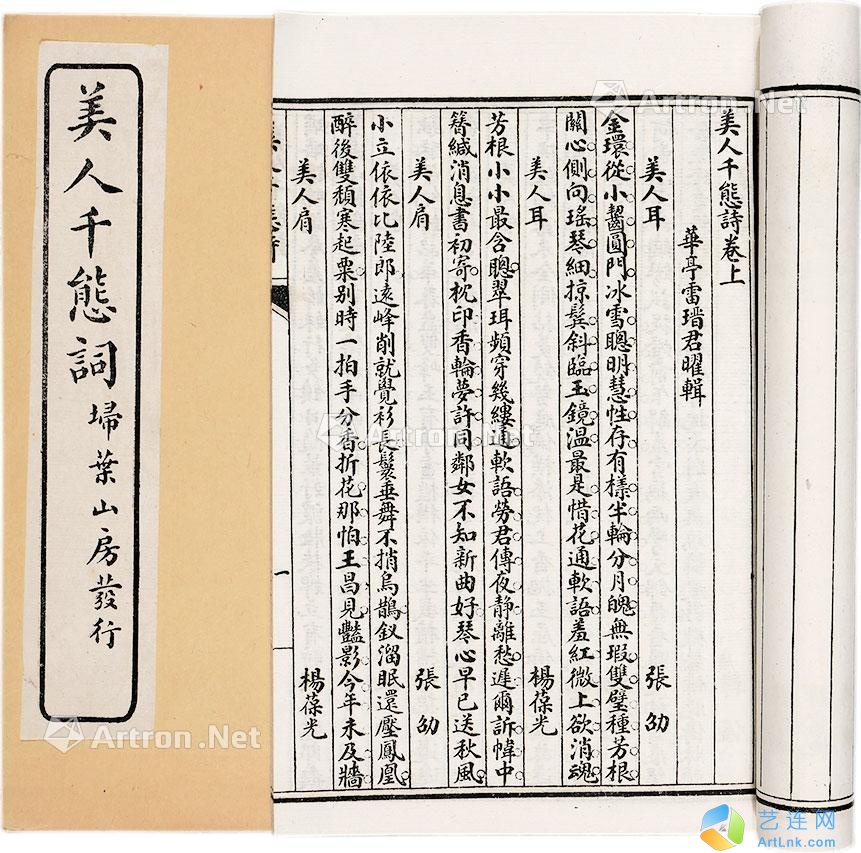 美人千態詞
埽葉山房發行
美人千態詩卷上
華亭雷瑨君曜輯
美人耳 張劭
金環從小齧圓門冰雪聰明慧性存有樣半輪分月魄無瑕雙璧種芳根
關心側向瑤琴細掠鬢斜臨玉鏡溫最是惜花通軟語羞紅微上欲消魂
美人耳 楊葆光
芳根小小最含聰翠珥頻穿幾縷通軟語勞君傳夜静離愁遲爾訴幃中
簪緘消息書初寄枕印香輪夢許同鄰女不知新曲好琴心早已送秋風
美人肩 張劭
小立依依比陸郎遠峰削就覺衫長鬟垂舞不捎烏鵲釵溜眠還壓鳳凰
醉後雙頹寒起粟別時一拍手分香折花那怕王昌見豔影今年未及牆
美人肩 楊葆光
一
Artron.Net
Artron.Net
Artron.Net
艺连网
ArtLnk.com